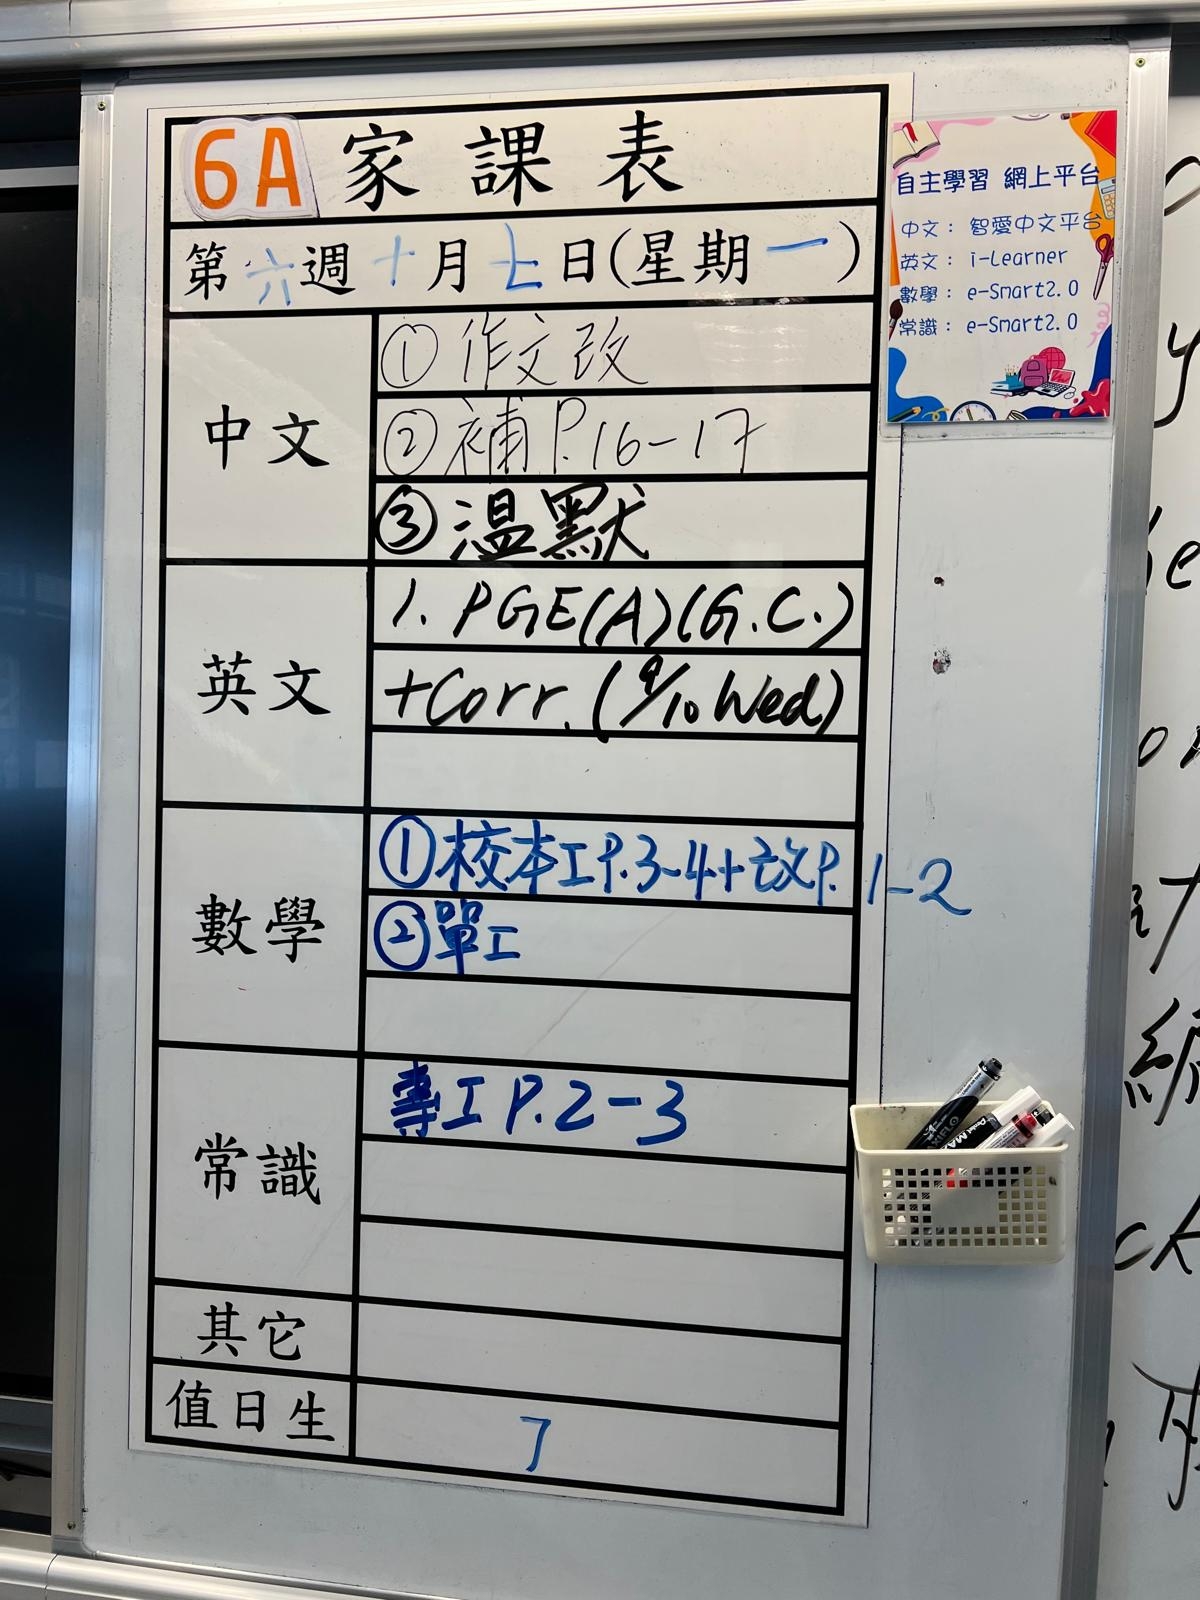 6A 家課表
第六週十月七日(星期一)
中文
① 作文改
② 補 P.16-17
③ 溫默
英文
1. PGE(A)(G.C.)
+Corr. (9/10 Wed)
數學
① 校本工P.3-4+改P.1-2
② 單工
常識
專工 P.2-3
其它
值日生
7
自主學習 網上平台
中文： 智愛中文平台
英文： i-Learner
數學： e-Smart2.0
常識： e-Smart2.0